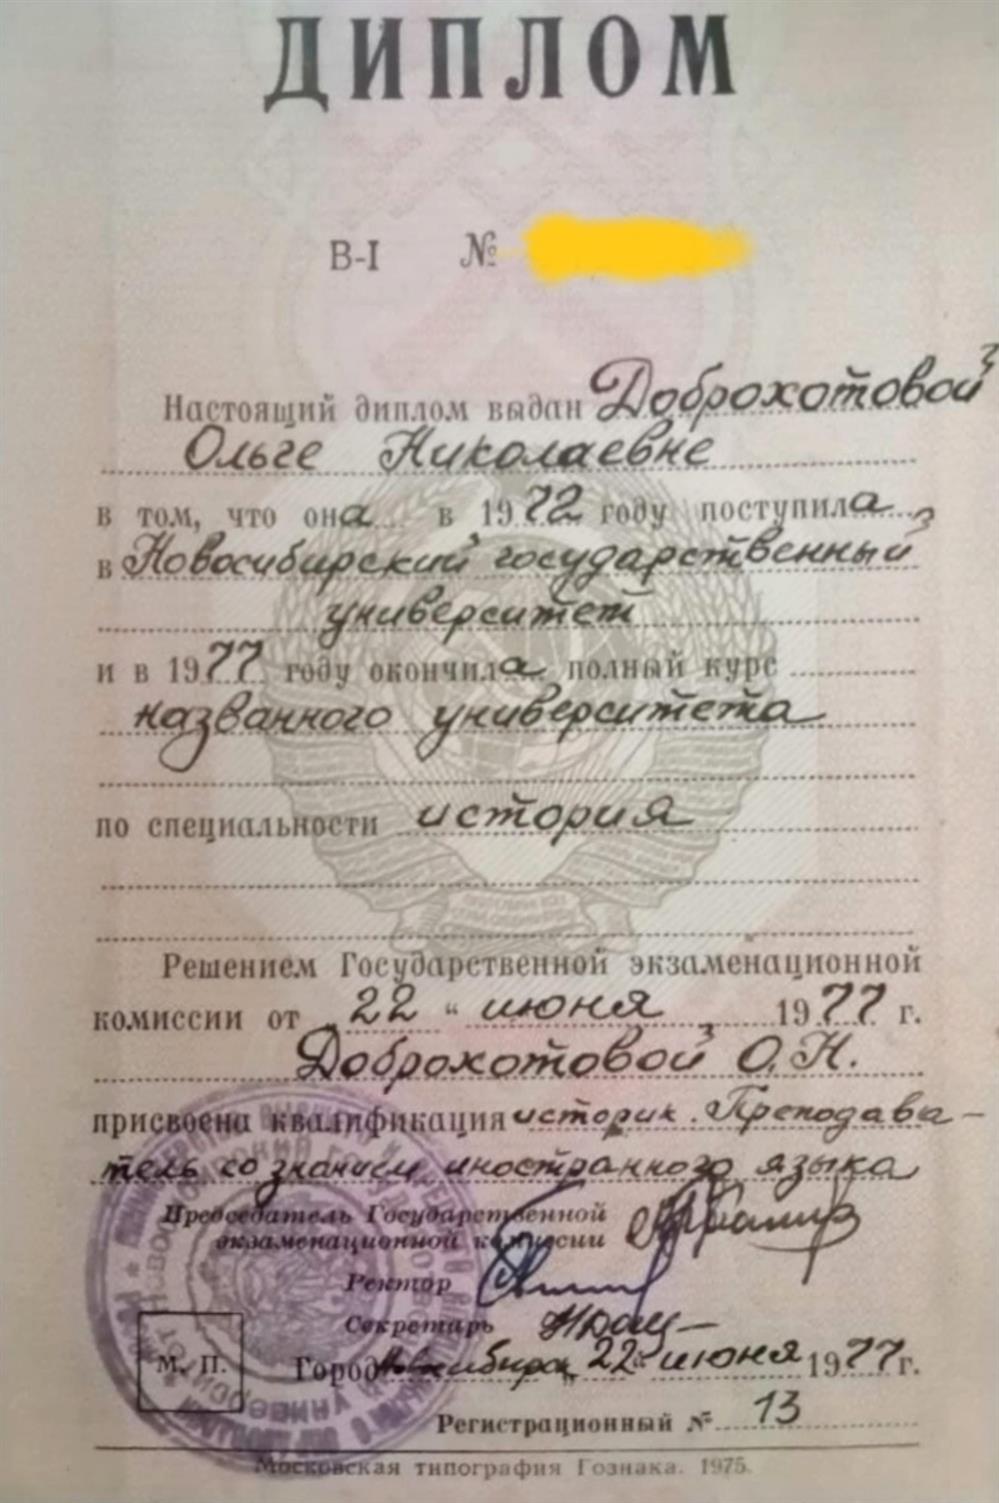 ДИПЛОМ
В-I №
Настоящий диплом выдан Доброхотовой
Ольге Николаевне
в том, что она в 1972 году поступила
в Новосибирский государственный
университет
и в 1977 году окончила полный курс
названного университета
по специальности история
Решением Государственной экзаменационной
комиссии от „22“ июня 1977 г.
Доброхотовой О.Н.
присвоена квалификация историк. Преподава-
тель со знанием иностранного языка
Председатель Государственной
экзаменационной комиссии
Ректор
Секретарь
М. П.
Город Новосибирск „22“ июня 1977 г.
Регистрационный № 13
Московская типография Гознака. 1975.